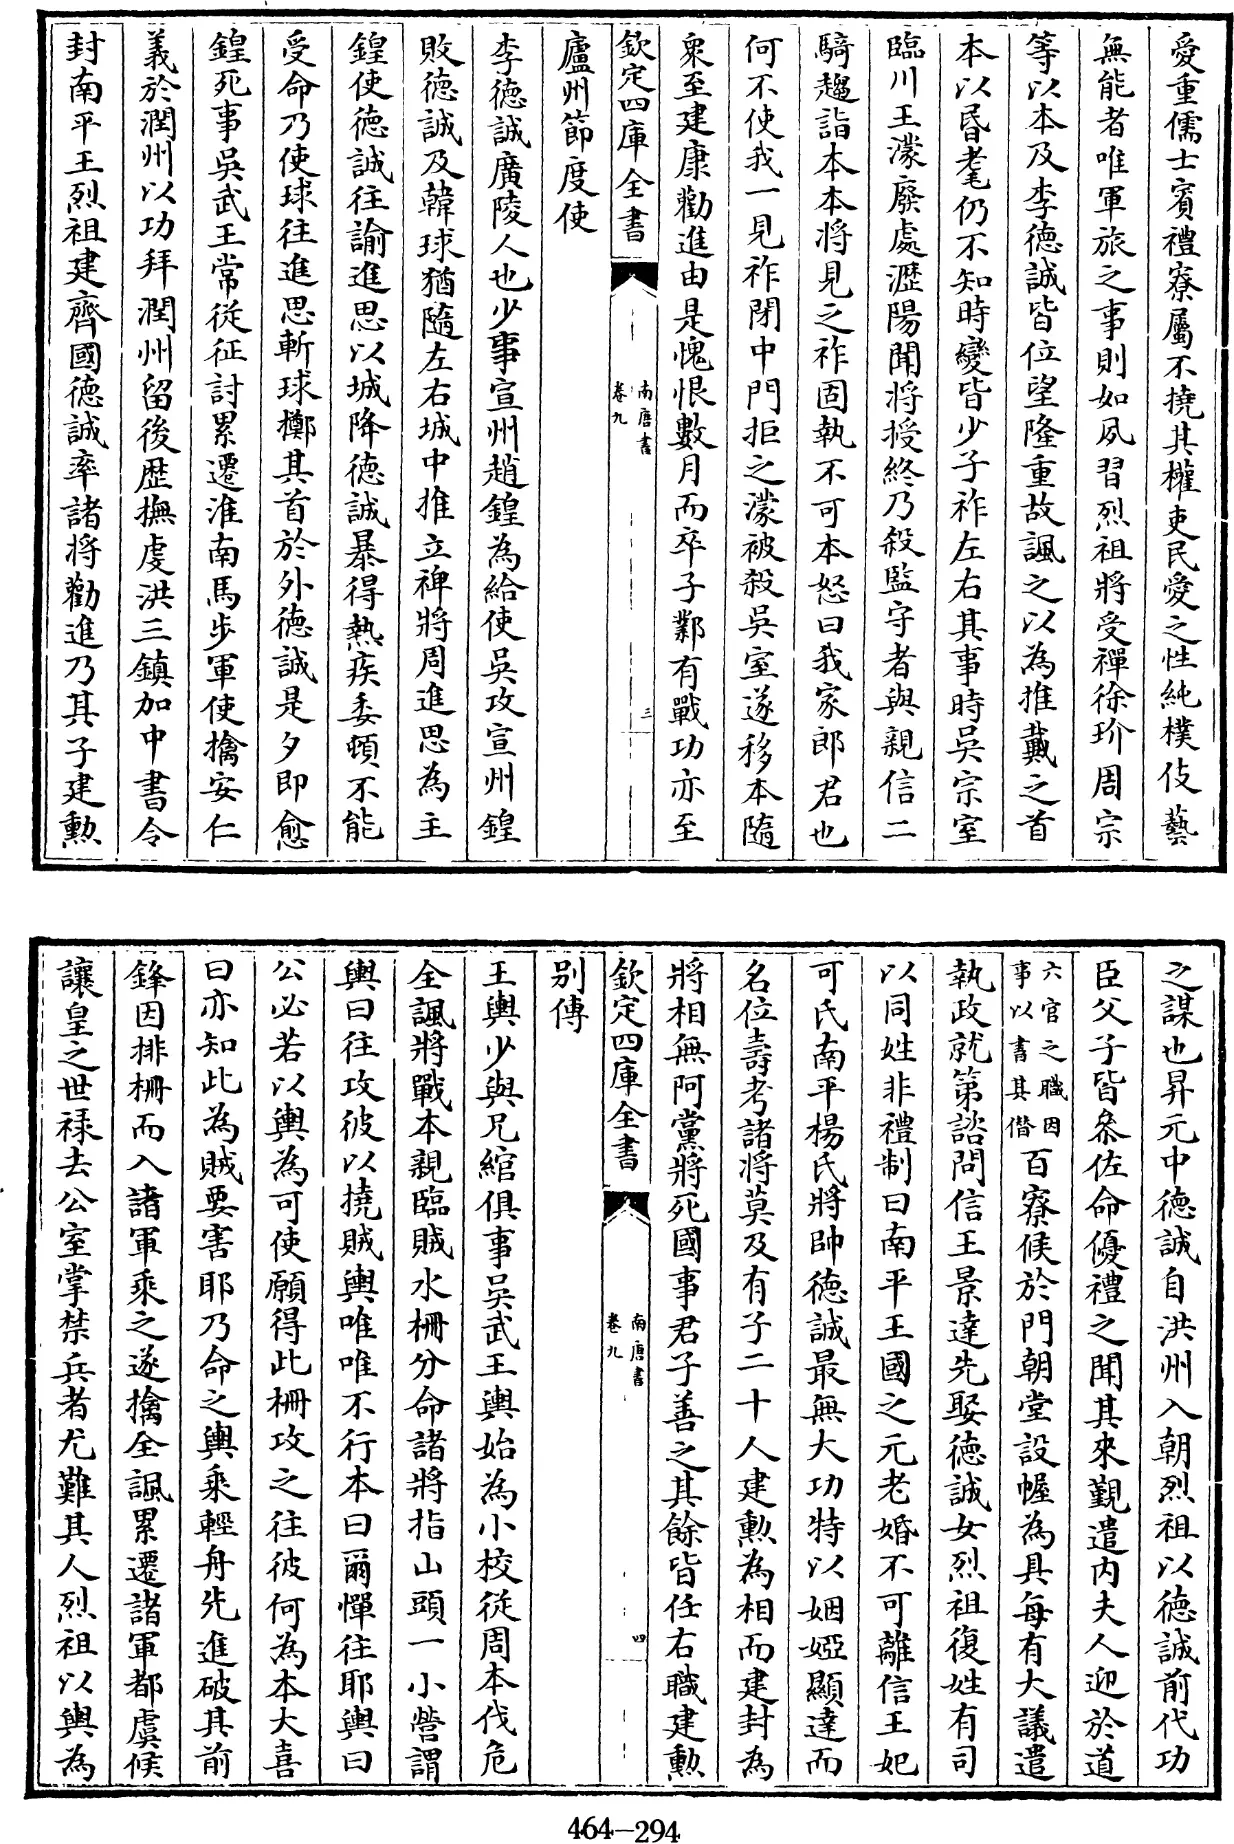 愛重儒士賓禮寮屬不撓其權吏民愛之性純樸伎藝
無能者唯軍旅之事則如夙習烈祖將受禪徐玠周宗
等以本及李德誠皆位望隆重故諷之以為推戴之首
本以昏耄仍不知時變皆少子祚左右其事時吳宗室
臨川王濛廢處瀝陽聞將授終乃殺監守者與親信二
騎趨詣本本將見之祚固執不可本怒曰我家郎君也
何不使我一見祚閉中門拒之濛被殺吳室遂移本隨
衆至建康勸進由是愧恨數月而卒子鄴有戰功亦至
欽定四庫全書
南唐書
卷九
三
廬州節度使
李德誠廣陵人也少事宣州趙鍠為給使吳攻宣州鍠
敗德誠及韓球猶隨左右城中推立裨將周進思為主
鍠使德誠往諭進思以城降德誠暴得熱疾委頓不能
受命乃使球往進思斬球擲其首於外德誠是夕即愈
鍠死事吳武王常從征討累遷淮南馬步軍使擒安仁
義於潤州以功拜潤州留後歷撫虔洪三鎮加中書令
封南平王烈祖建齊國德誠率諸將勸進乃其子建勳
之謀也昇元中德誠自洪州入朝烈祖以德誠前代功
臣父子皆叅佐命優禮之聞其來覲遣内夫人迎於道
六官之職因
事以書其僭
百寮候於門朝堂設幄為具每有大議遣
執政就第諮問信王景達先娶德誠女烈祖復姓有司
以同姓非禮制曰南平王國之元老婚不可離信王妃
可氏南平楊氏將帥德誠最無大功特以姻婭顯達而
名位壽考諸將莫及有子二十人建勲為相而建封為
將相無阿黨將死國事君子善之其餘皆任右職建勲
欽定四庫全書
南唐書
卷九
四
别傳
王輿少與兄綰俱事吳武王輿始為小校從周本伐危
全諷將戰本親臨賊水柵分命諸將指山頭一小營謂
輿曰往攻彼以撓賊輿唯唯不行本曰爾憚往耶輿曰
公必若以輿為可使願得此柵攻之往彼何為本大喜
曰亦知此為賊要害耶乃命之輿乘輕舟先進破其前
鋒因排柵而入諸軍乘之遂擒全諷累遷諸軍都虞候
讓皇之世禄去公室掌禁兵者尤難其人烈祖以輿為
464-294